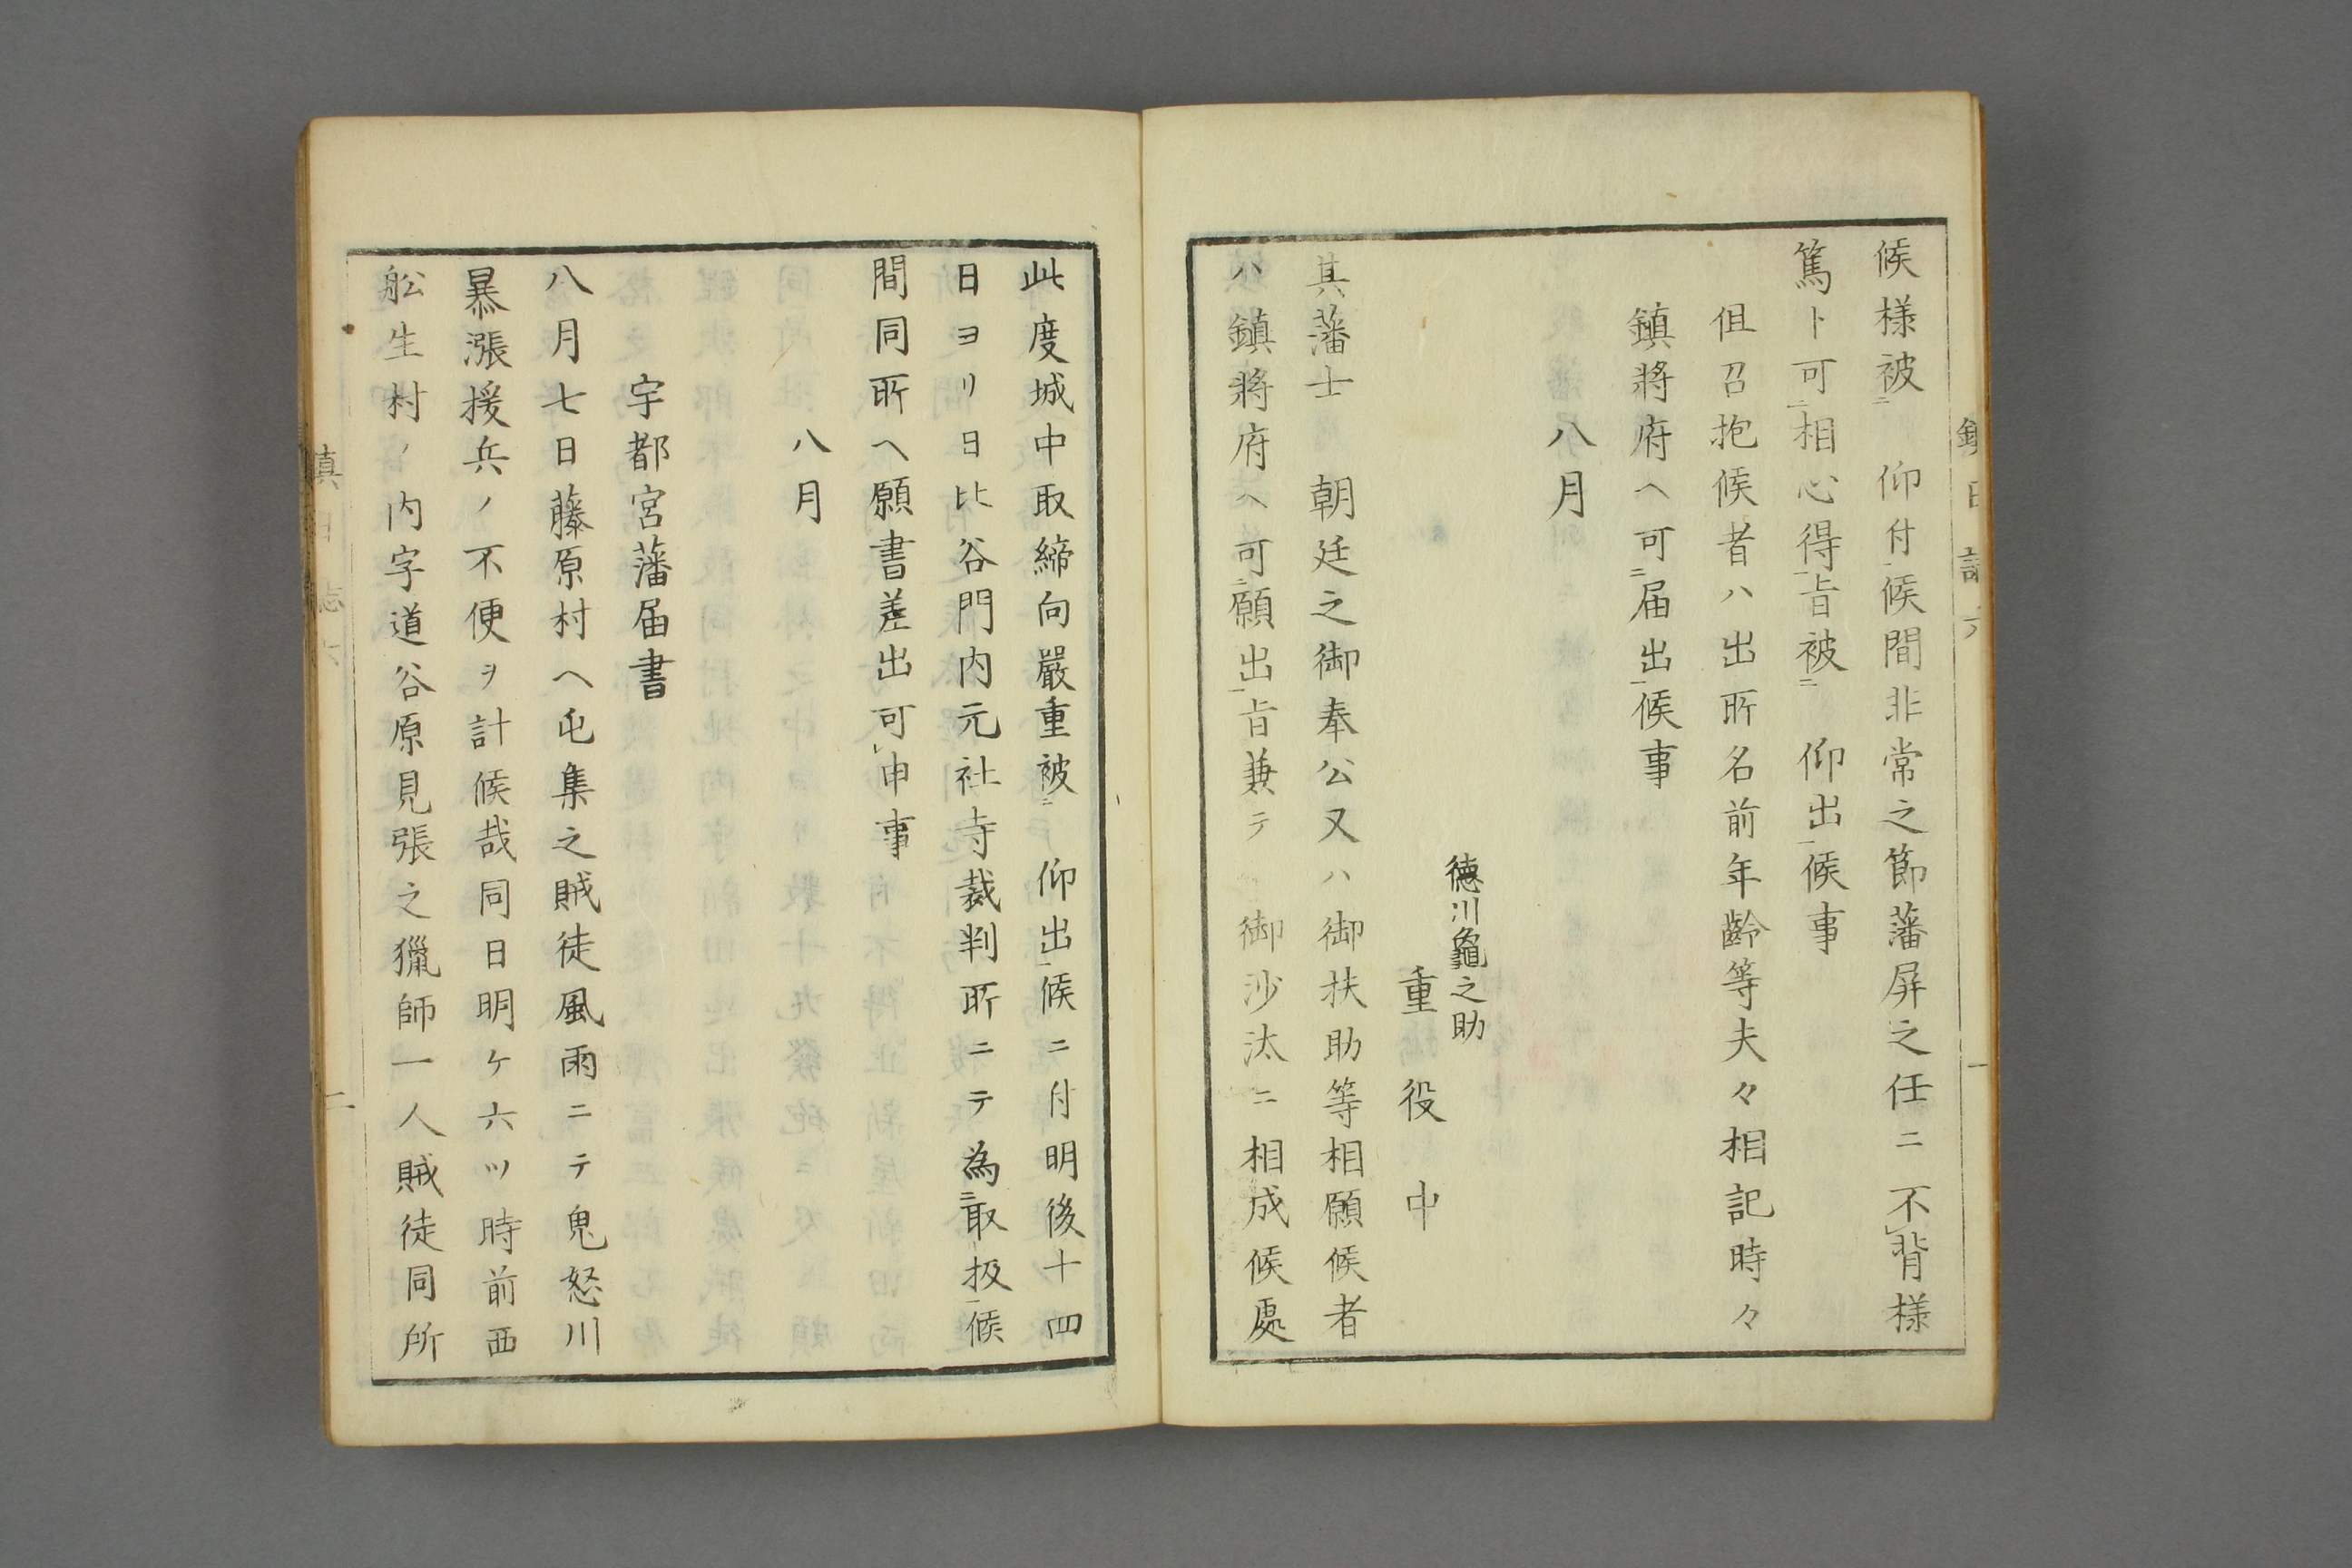 候様被㆓　仰付㆒候間非常之節藩屏之任ニ不㆑背様
篤ト可㆓相心得㆒旨被㆓　仰出㆒候事
但召抱候者ハ出所名前年齢等夫々相記時々
鎮将府ヘ可㆓届出㆒候事
八月
徳川龜之助
重役中
其藩士　朝廷之御奉公又ハ御扶助等相願候者
ハ鎮将府ヘ可㆓願出㆒旨兼テ　御沙汰ニ相成候處
此度城中取締向嚴重被㆓　仰出㆒候ニ付明後十四
日ヨリ日比谷門内元社寺裁判所ニテ為㆓取扱㆒候
間同所ヘ願書差出可㆑申事
八月
宇都宮藩届書
八月七日藤原村ヘ屯集之賊徒風雨ニテ鬼怒川
暴漲援兵ノ不便ヲ計候哉同日明ケ六ツ時前西
舩生村ノ内字道谷原見張之獵師一人賊徒同所